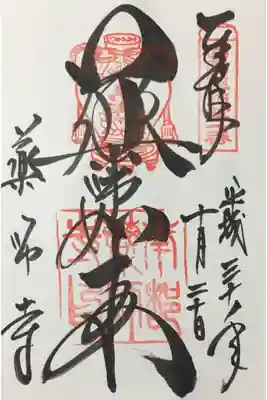 奉拝
平成三十年
十月二十日
薬師如来
藥師寺